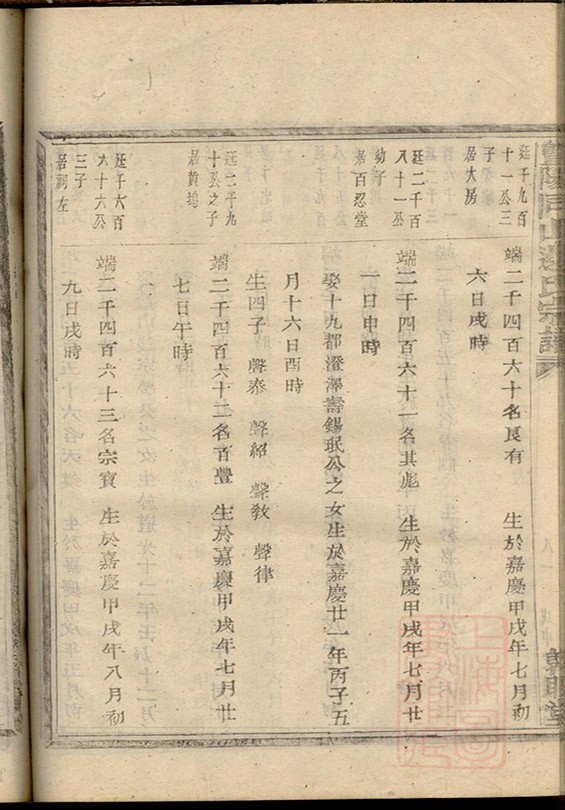 暨陽同山邊氏宗譜
廷千九百
十一公三
子
居大房
端二千四百六十名良有 生於嘉慶甲戌年七月初
六日戌時
廷二千百
八十一公
幼子
居百忍堂
端二千四百六十一名其彪 生於嘉慶甲戌年七月廿
一日申時
娶十九都澄澤壽錫珉公之女生於嘉慶廿一年丙子五
月十六日酉時
生四子 聲泰 聲紹 聲敎 聲律
廷二千九
十公之子
居黃塢
端二千四百六十二名百豐 生於嘉慶甲戌年七月廿
七日午時
廷千六百
六十六公
三子
居祠左
端二千四百六十三名宗寶 生於嘉慶甲戌年八月初
九日戌時